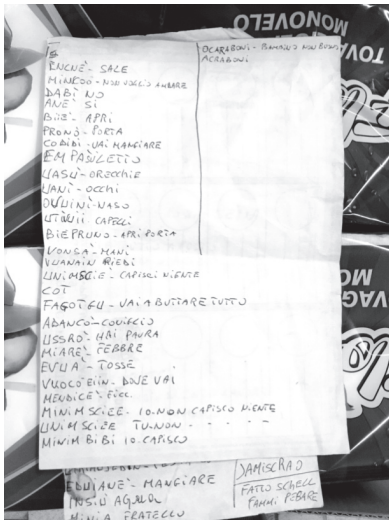 PNCNÈ - SALE
MINCOO - NON VOGLIO ANDARE
DABI NO
ANÈ SI
BIIÈ - APRI
PRONO - PORTA
CODIDI - VAI MANGIARE
EMPASULETTO
UASU - ORECCHIE
UANI - OCCHI
OVUINI - NASO
CAPELLI
BIEPRUNO - APRI PORTA
VONSA - MANI
VUANAIN RIEDI
UNIMSCIE - CAPISCI NIENTE
COT
FAGOTGU - VAI A BUTTARE TUTTO
ADANCO - CONIGLIO
USSRO - HAI PAURA
MIARÈ - FEBBRE
EVUA - TOSSE
VUOCOEIIN - DOVE VAI
MENDICE -
MINIMSCIEE - IO - NON CAPISCO NIENTE
UNIMSCIEE TU - NON - - - - -
MINIM BIBI IO CAPISCO
OCARABONI - BAMBINO NON BUONO
ACRABONI
EDUIANÈ - MANGIARE
INSIU
MINIA FRATELLO
DAMISCRAO
FATTO SCHELL
FAMMI PEBARE
MONOVELO
TOVA
MO
VAG